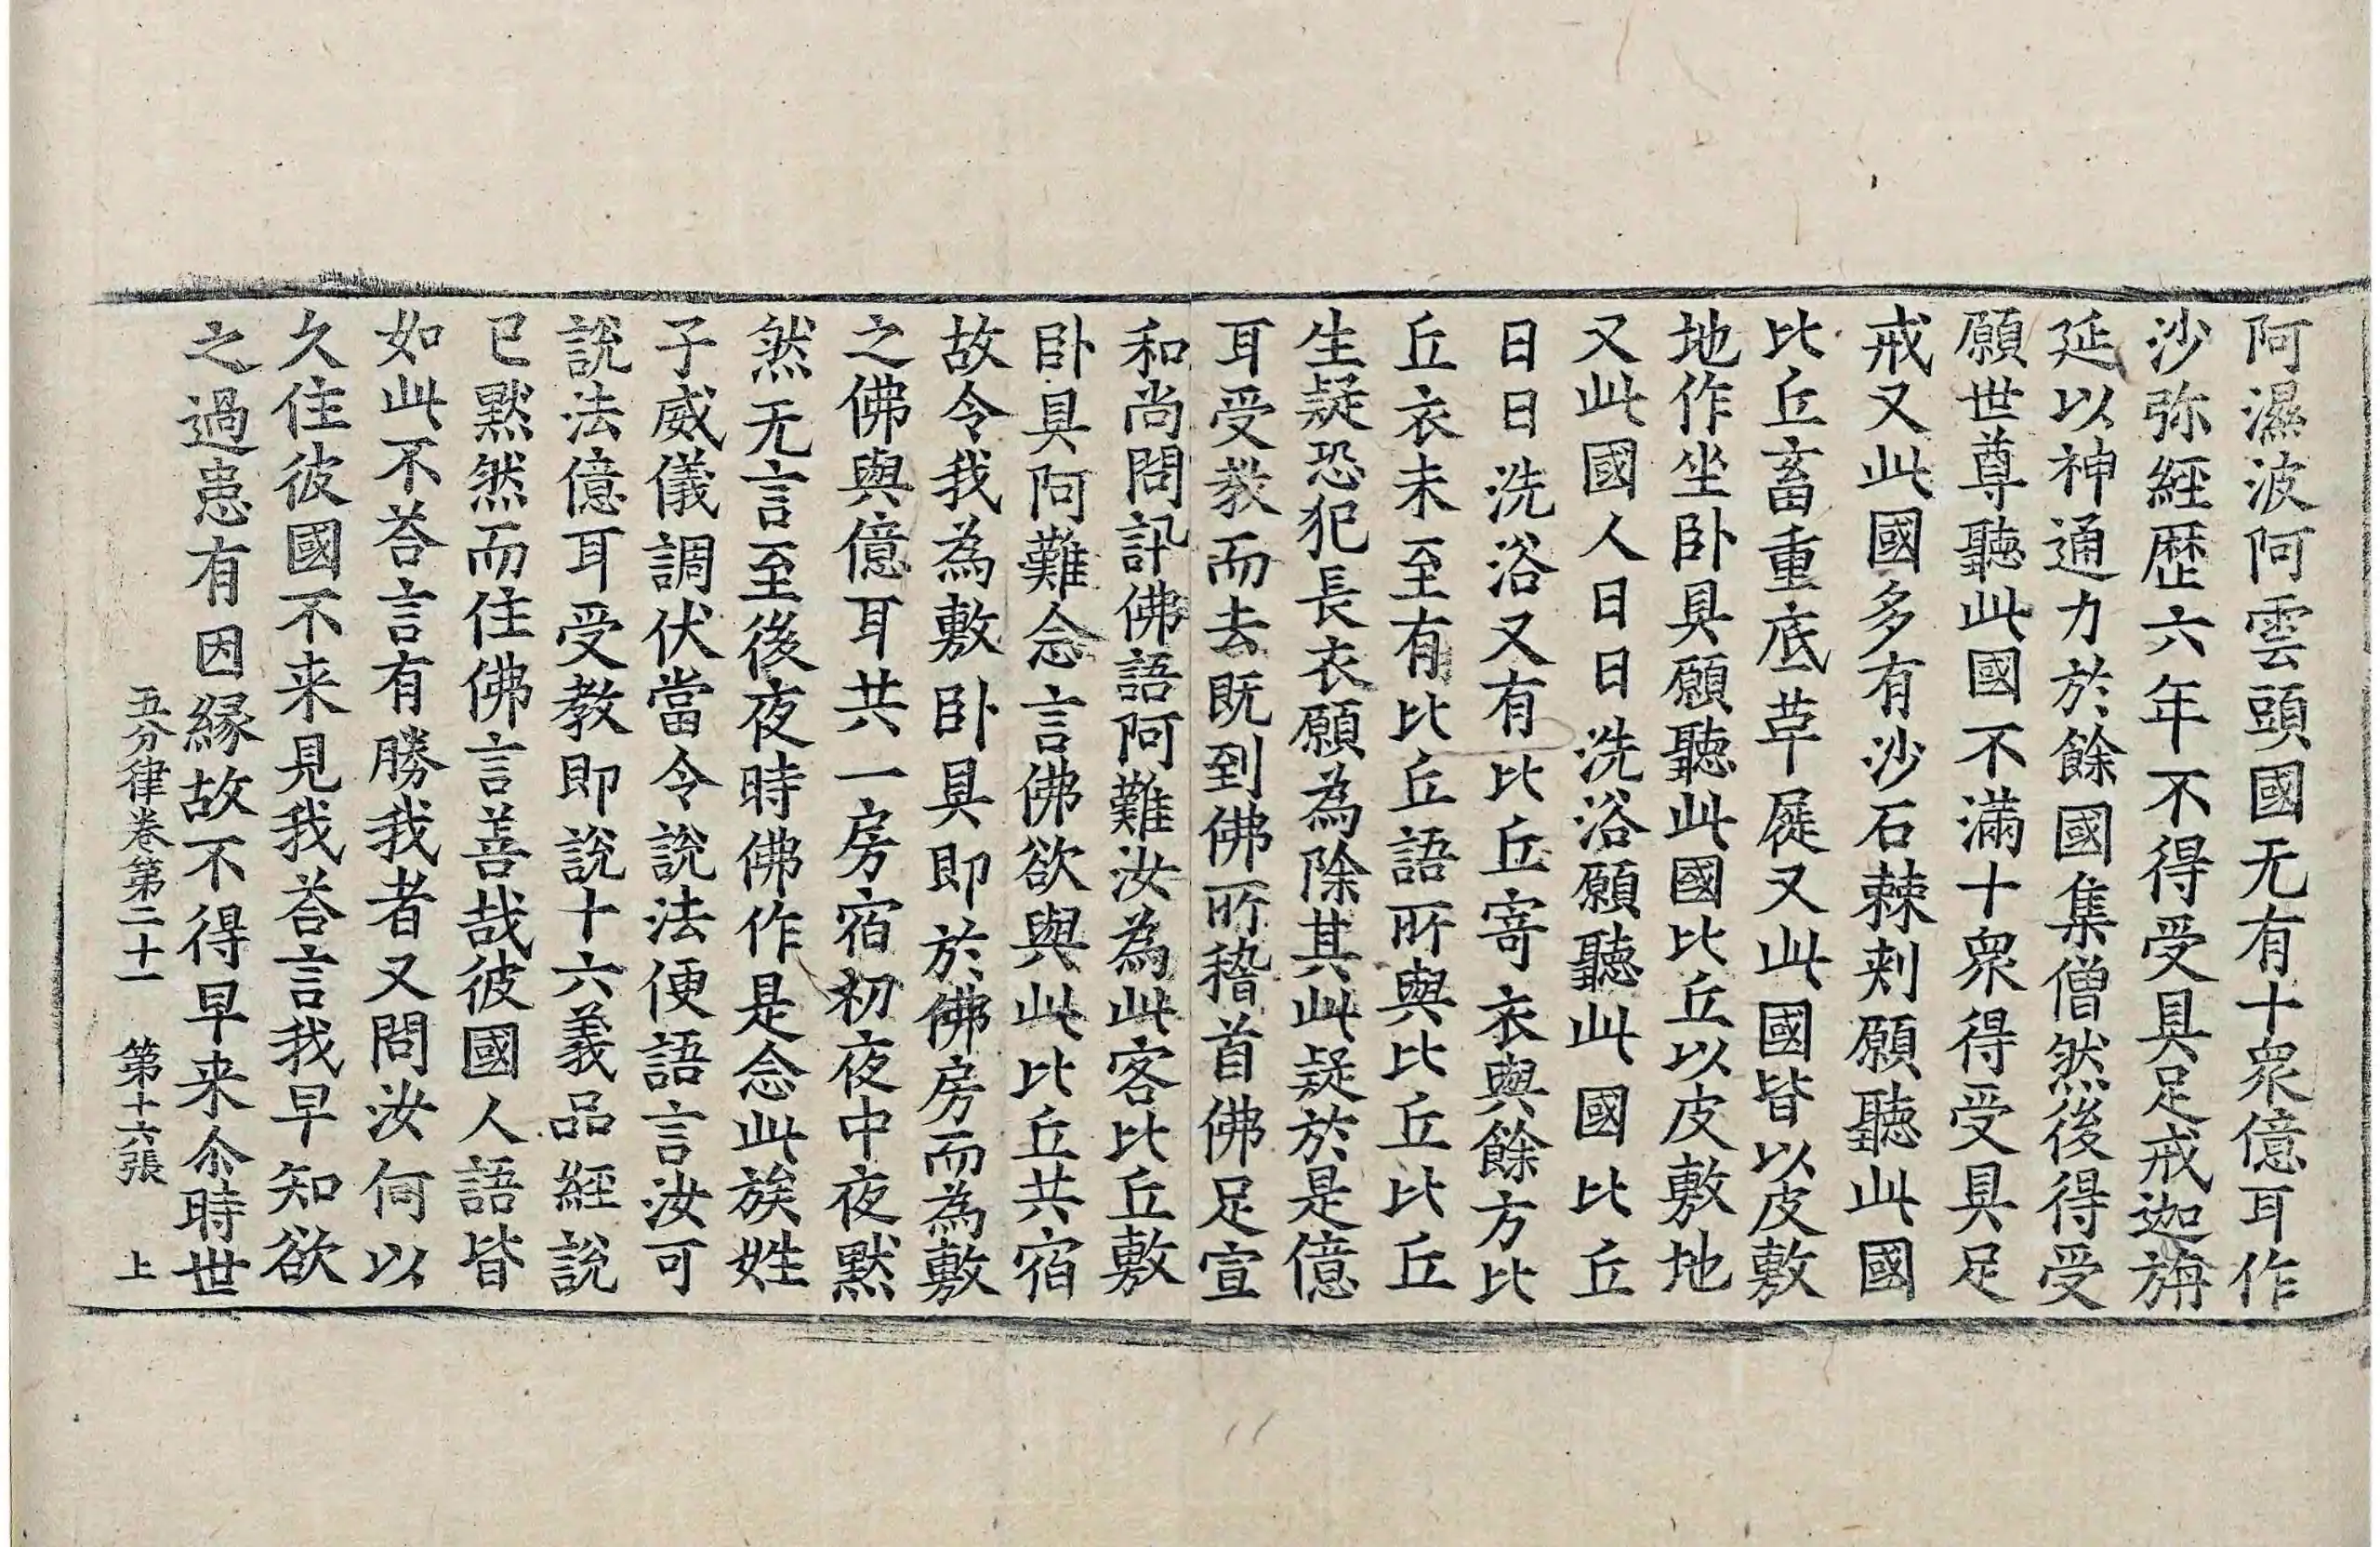 阿濕波阿雲頭國无有十衆億耳作
沙弥經歷六年不得受具足戒迦旃
延以神通力於餘國集僧然後得受
願世尊聽此國不滿十衆得受具足
戒又此國多有沙石棘刾願聽此國
比丘畜重底草屣又此國皆以皮敷
地作坐卧具願聽此國比丘以皮敷地
又此國人日日洗浴願聽此國比丘
日日洗浴又有比丘寄衣與餘方比
丘衣未至有比丘語所與比丘比丘
生疑恐犯長衣願為除其此疑於是億
耳受教而去既到佛所稽首佛足宣
和尚問訊佛語阿難汝為此客比丘敷
卧具阿難念言佛欲與此比丘共宿
故令我為敷卧具即於佛房而為敷
之佛與億耳共一房宿初夜中夜默
然无言至後夜時佛作是念此族姓
子威儀調伏當令說法便語言汝可
說法億耳受教即說十六義品經說
已黙然而住佛言善哉彼國人語皆
如此不荅言有勝我者又問汝何以
久住彼國不来見我荅言我早知欲
之過患有因縁故不得早来尒時世
五分律卷第二十一 第十六張 上